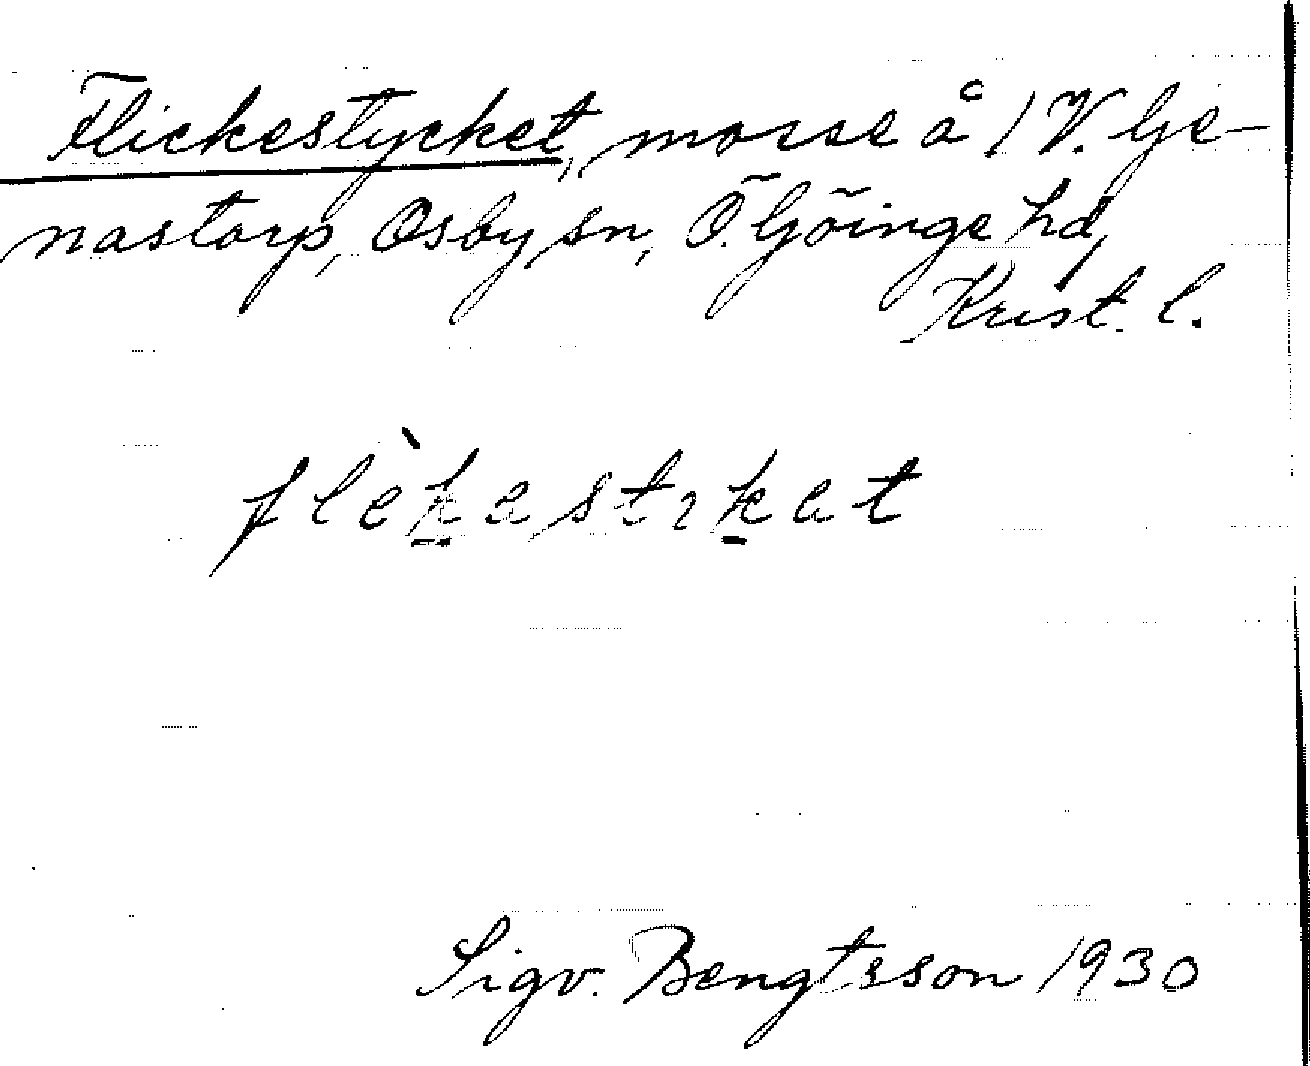 Flickestycket, mosse å 1 V. Gje-
nastorp, Osby sn, Ö. Göinge hd,
Krist. l.
flèkastrkat
Sigv. Bengtsson 1930